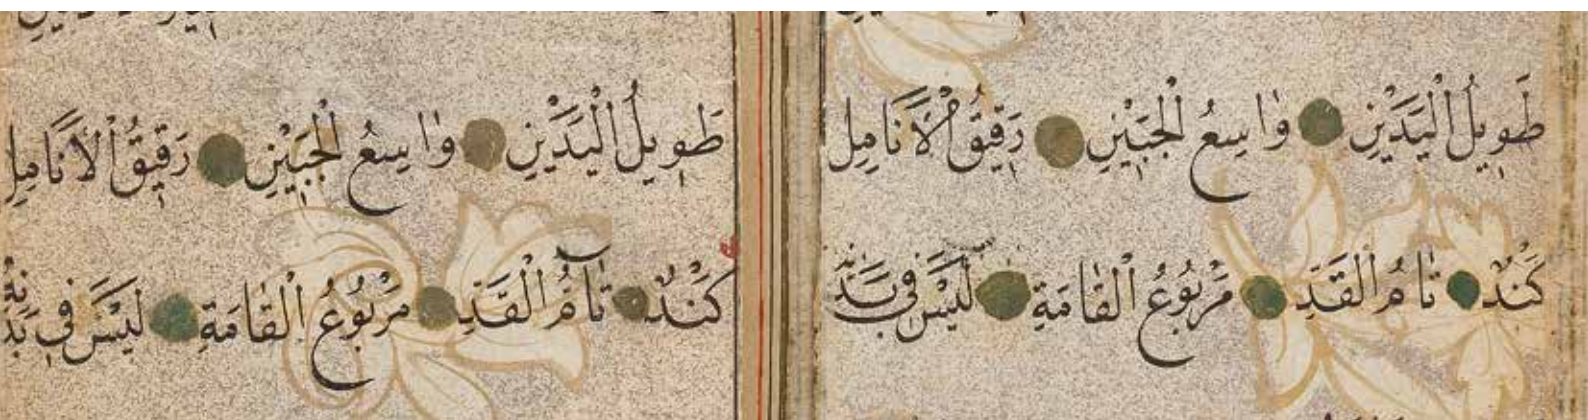 طَوِيلُ الْيَدَيْنِ وٰاسِعُ الْجَبَيْنِ رَقِيقُ الْاَنَامِلِ
كَنْدٌ تٰامُ الْقَدِّ مَرْبُوعُ الْقٰامَةِ لَيْسَ فِى
طَوِيلُ الْيَدَيْنِ وٰاسِعُ الْجَبَيْنِ رَقِيقُ الْاَنَامِلِ
كَنْدٌ تآمُّ الْقَدِّ مَرْبُوعُ الْقٰامَةِ لَيْسَ فِى بَدَنِهِ